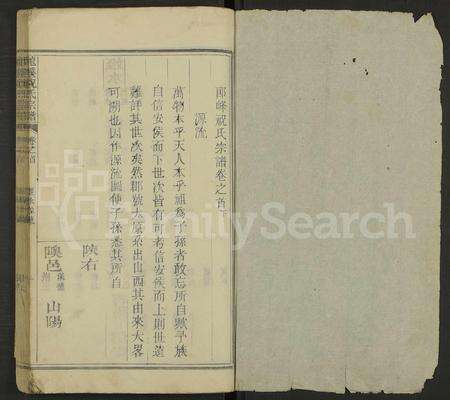 郎峰祝氏宗譜卷之首
源流
萬物本乎天人本乎祖為子孫者敢忘所自歟予族
自信安侯而下世次皆有可考信安侯而上則世遠
難詳其世次矣然郡號太原系出山西其由來大畧
可溯也因作源流圖使子孫悉其所自
陜右
山陽
祝氏宗譜
FamilySearch